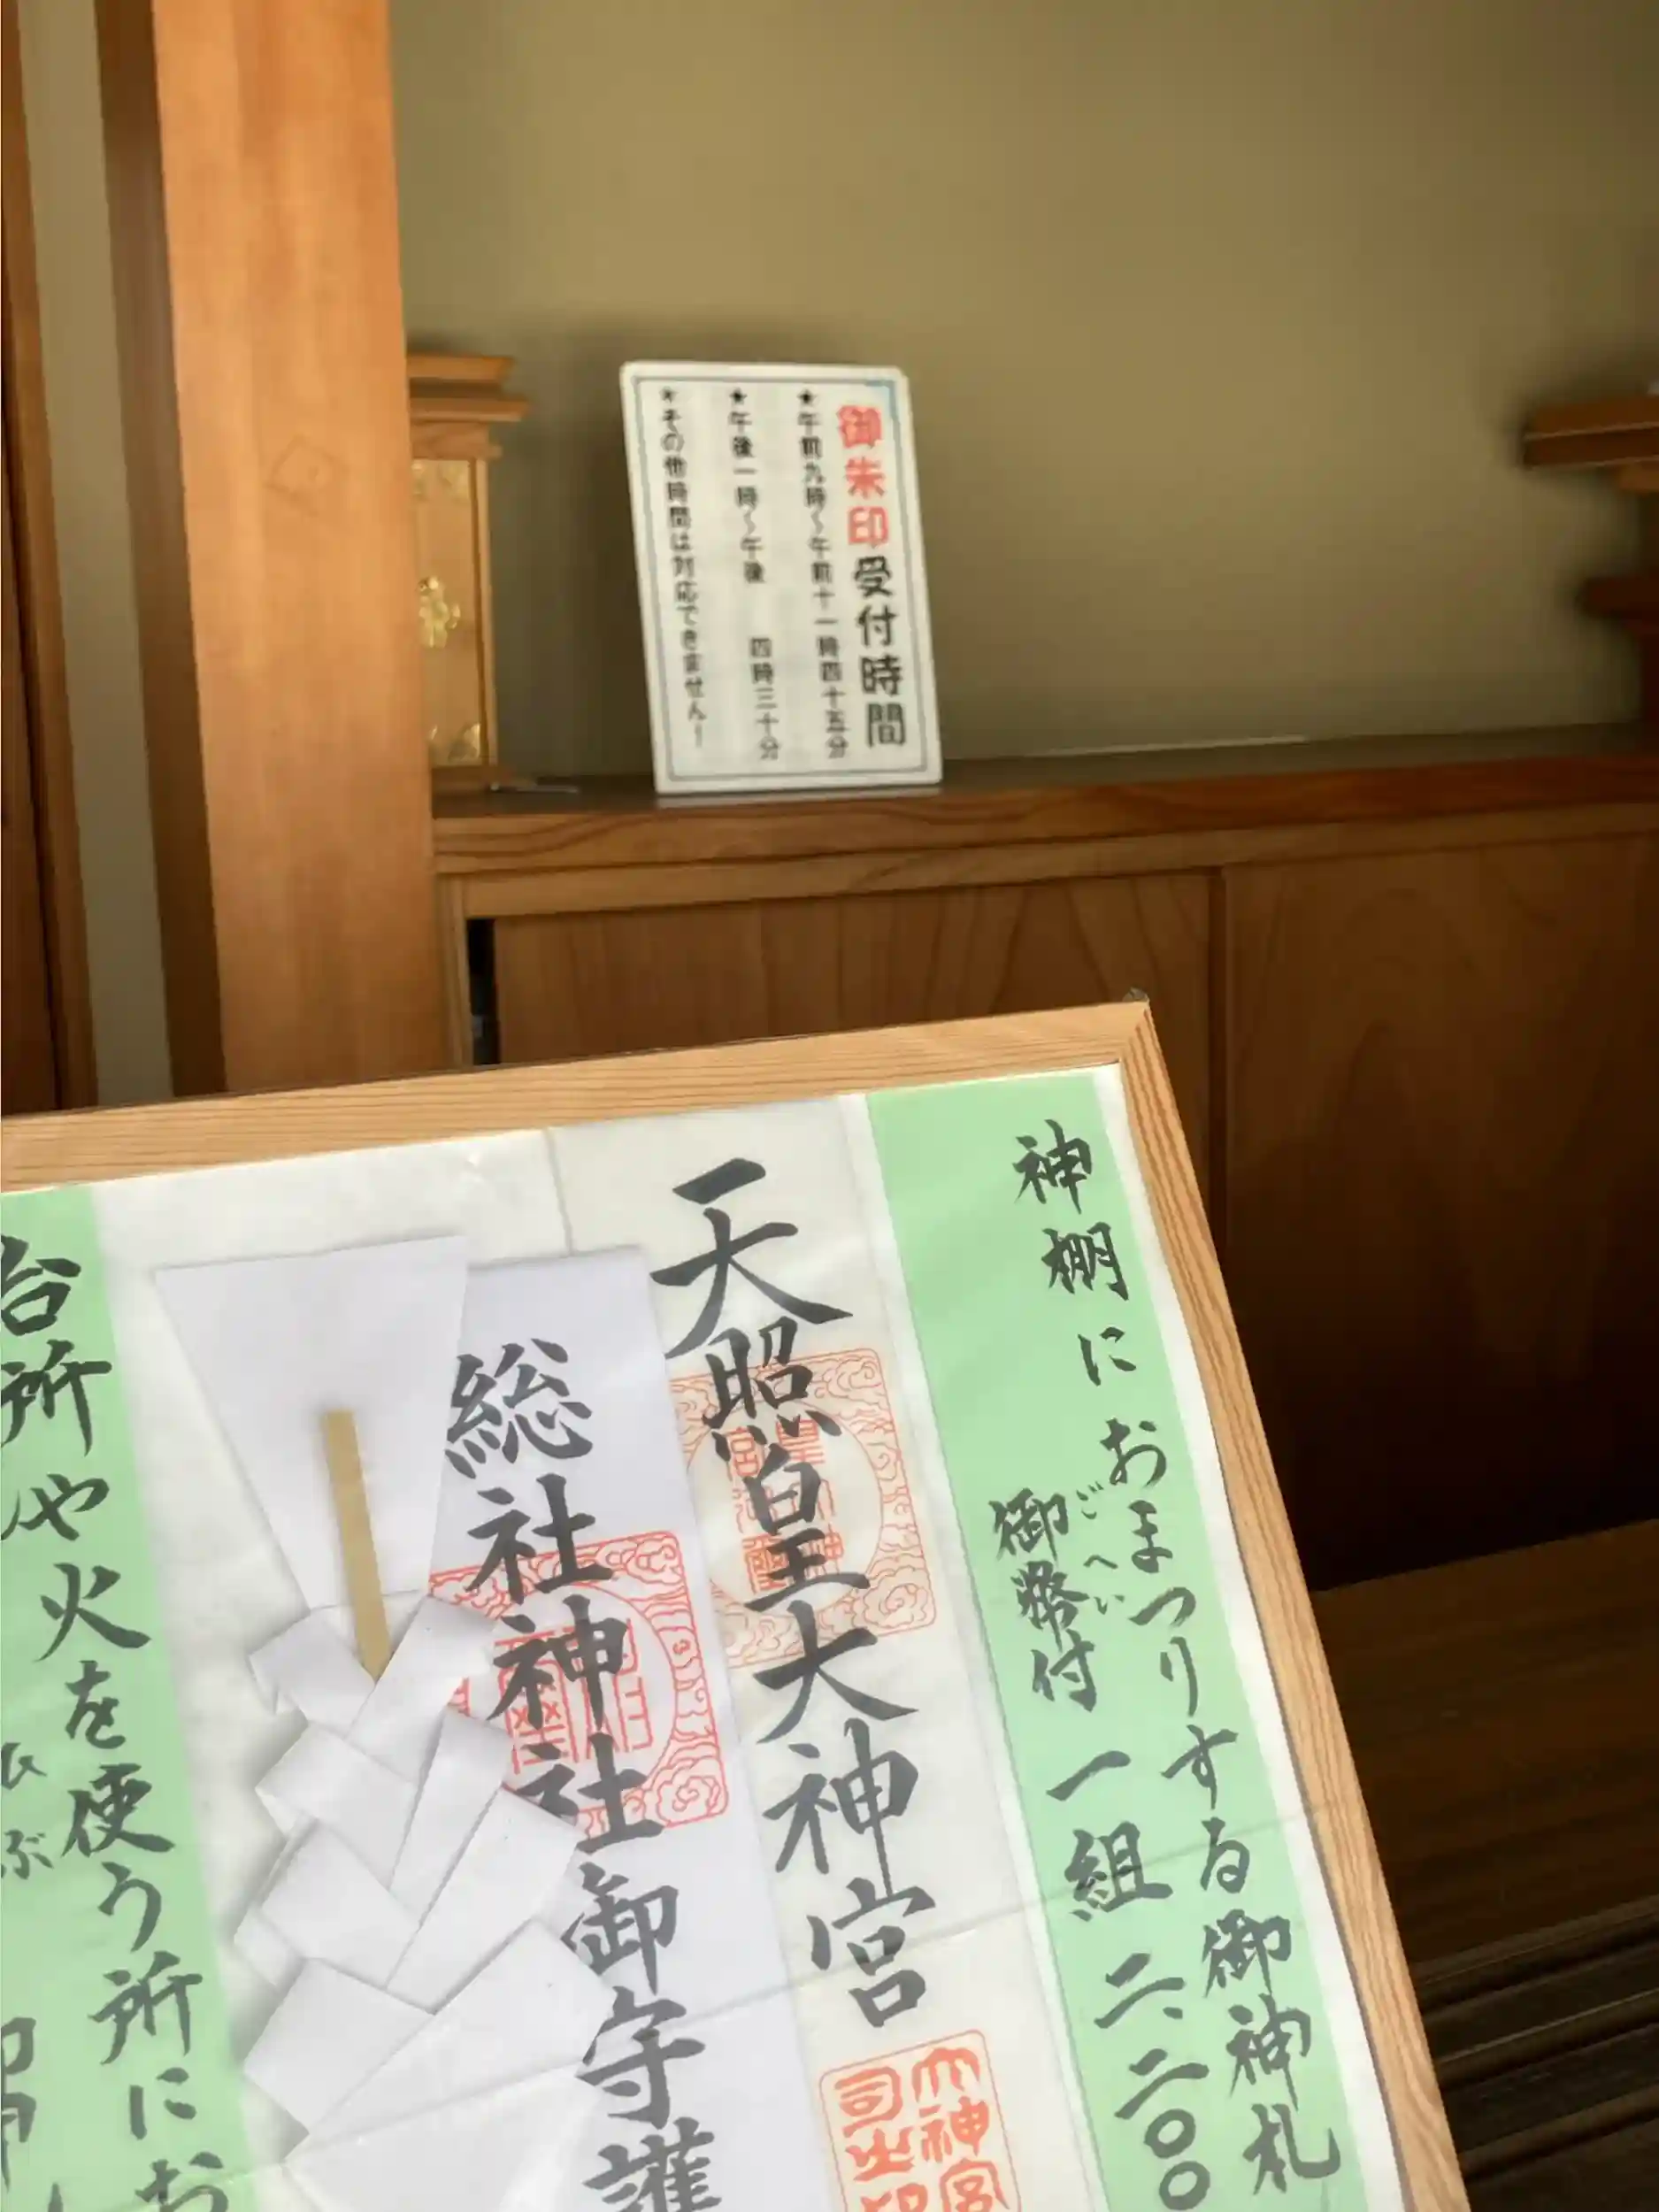 御朱印受付時間
★午前九時～午前十一時四十五分
★午後一時～午後 四時三十分
★その他時間は対応できません!
神棚におまつりする御神札
御幣付 一組 二、二〇〇
ごへい
天照皇大神宮
総社神社御守護
台所や火を使う所にお